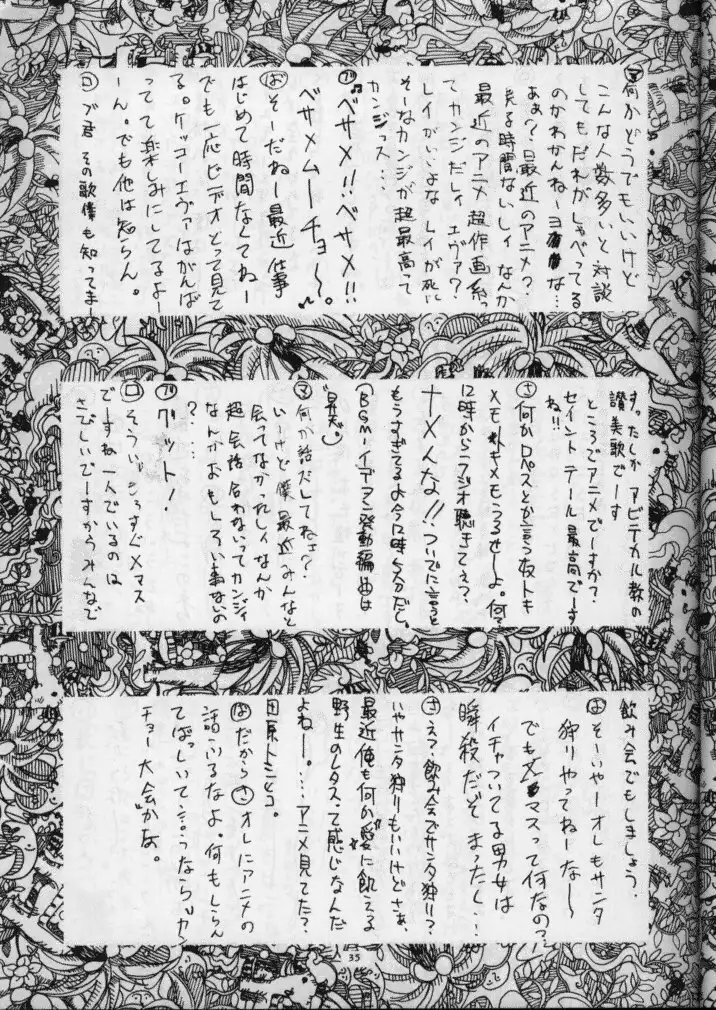 マ何かどうでもいいけど
こんな人数多いと対談
してもだれがしゃべってる
のかわかんねーヨな…
あぁ?最近のアニメ?
見る時間ないしィなんか
最近のアニメ超作画系っ
てカンジだしィエヴァ?
レイがいいよなレイが死に
そーなカンジが超最高って
カンジっス…
ブ♪ベサメ!!ベサメ!!
ベサメムーチョ〜。
ばそーだねー最近仕事
はじめて時間なくてねー
でも一応ビデオとって見て
る。ケッコーエヴァはがんば
ってて楽しみにしてるよー
ーん。でも他は知らん。
ロブ君その歌僕も知ってまー
す。たしかアビテカル教の
讃美歌でーす
ところでアニメでーすか?
セイントテール最高でーす
ね!!
さ何かロペスとか言う奴トも
メモもうるせーよ。何?
12時からラジオ聴きてぇ?
ナメんな!!ついでに言うと
もうすぎてるよ今12時5分だし、
(BGMイデオン発動編曲は
昇天)
マ何か話だしてねェ?
いーけど僕最近みんなと
会ってなかったしィなんか
超会話合わないってカンジィ
なんかおもしろい事ないの
?…
ブグット!
ロそういえばもうすぐXマス
ですね一人でいるのは
さびしいでーすからみんなで
飲み会でもしましょう。
ばそーいやーオレもサンタ
狩りやってねーな〜
でもXマスって何なの?
イチャついてる男女は
瞬殺だぞまったく…
さえ?飲み会でサンタ狩り?
いやサンタ狩りもいいけどさぁ、
最近俺も何か愛に飢える
野生のレタスって感じなんだ
よねー。…アニメ見てた?
田原トシヒコ。
ばだからさオレにアニメの
話ふるなよ。何もしらん
てばっしいて言うならガ
チョー大会かな。
35